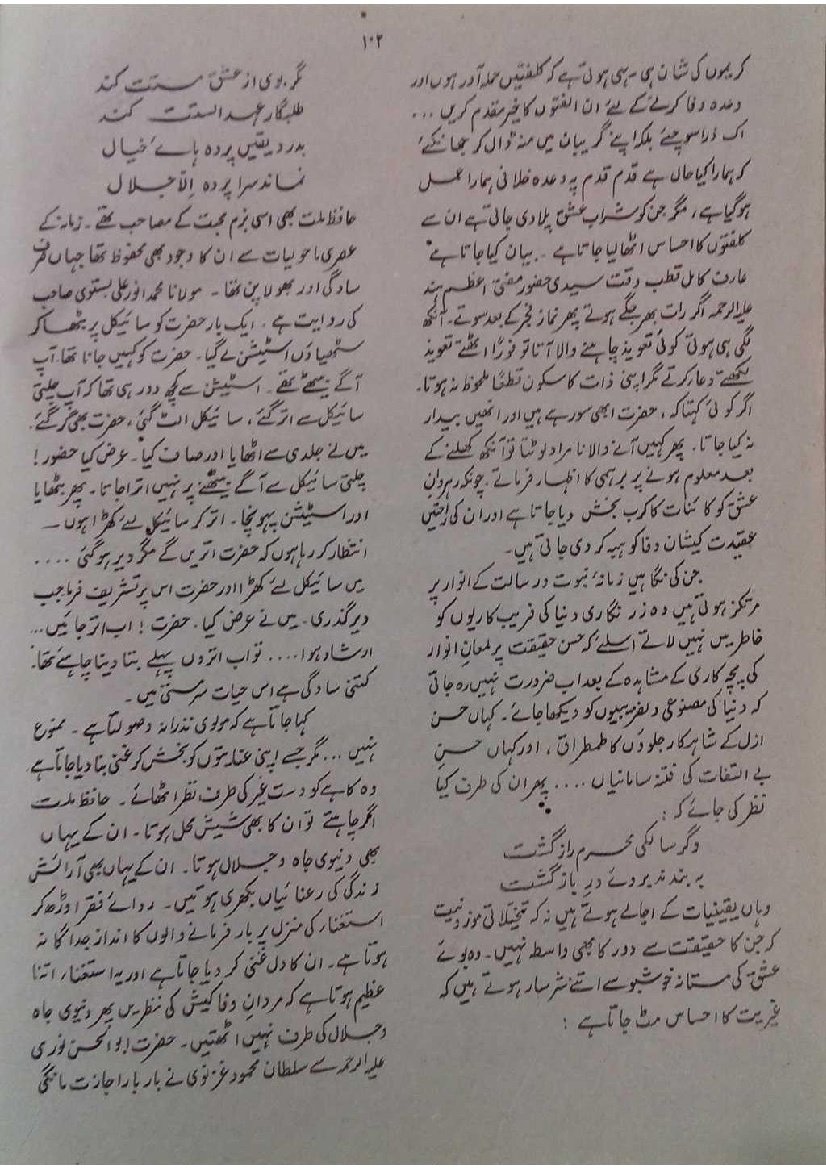 ۱۰۲
کریموں کی شان ہی یہی ہوتی ہے کہ کلفتیں حملہ آور ہوں اور
وعدہ وفا کرنے کے لئے ان الفتوں کا خیر مقدم کریں ...
اک ذرا سوچئے بلکہ اپنے گریبان میں منہ ڈال کر جھانکئے
کہ ہمارا کیا حال ہے قدم قدم پہ وعدہ خلافی ہمارا عمل
ہوگیا ہے، مگر جن کو شراب عشق پلا دی جاتی ہے ان سے
کلفتوں کا احساس اٹھا لیا جاتا ہے ۔ بیان کیا جاتا ہے
عارف کامل قطب وقت سیدی حضور مفتی اعظم ہند
علیہ الرحمہ اگر رات بھر جگے ہوتے پھر نماز فجر کے بعد سوتے۔ آنکھ
لگی ہی ہوتی کوئی تعویذ چاہنے والا آتا تو فوراً اٹھتے تعویذ
لکھتے دعا کرتے مگر اپنی ذات کا سکون قطعاً ملحوظ نہ ہوتا۔
اگر کوئی کہتا کہ، حضرت ابھی سو رہے ہیں اور انھیں بیدار
نہ کیا جاتا۔ پھر کہیں آنے والا نامراد لوٹتا تو آنکھ کھلنے کے
بعد معلوم ہونے پر برہمی کا اظہار فرماتے۔ چونکہ رہروان
عشق کو کائنات کا کرب بخش دیا جاتا ہے اور ان کی راحتیں
عقیدت کیشان وفا کو ہبہ کر دی جاتی ہیں۔
جن کی نگاہیں زمانۂ نبوت و رسالت کے انوار پر
مرتکز ہوتی ہیں وہ زر نگاری دنیا کی فریب کاریوں کو
خاطر میں نہیں لاتے اسلئے کہ حسن حقیقت پر لمعانِ انوار
کی پچہ کاری کے مشاہدہ کے بعد اب ضرورت نہیں رہ جاتی
کہ دنیا کی مصنوعی دلفریبیوں کو دیکھا جائے۔ کہاں حسن
ازل کے شاہکار جلووں کا طمطراق، اور کہاں حسنِ
بے التفات کی فتنہ سامانیاں .... پھر ان کی طرف کیا
نظر کی جائے کہ :
وگر سالکی محرم راز گشت
بہ بندند بروئے درِ باز گشت
وہاں یقینیات کے اجالے ہوتے ہیں نہ کہ تخیلاتی موزونیت
کہ جن کا حقیقت سے دور کا بھی واسطہ نہیں۔ وہ بوئے
عشق کی مستانہ خوشبو سے اتنے سرشار ہوتے ہیں کہ
غیریت کا احساس مٹ جاتا ہے :
گر بوی از عشق مستت کند
طلبگار عہد الستت کند
بدر دیقیں پردہ ہائے خیال
نماند سرا پردہ اِلّا جلال
حافظ ملت بھی اسی بزم محبت کے مصاحب تھے۔ زمانہ کے
عصری ماحولیات سے ان کا وجود بھی محفوظ تھا جہاں صرف
سادگی اور بھولا پن تھا۔ مولانا محمد انور علی بستوی صاحب
کی روایت ہے۔ ایک بار حضرت کو سائیکل پر بٹھا کر
سٹھیاؤں اسٹیشن لے گیا۔ حضرت کو کہیں جانا تھا، آپ
آگے بیٹھے تھے۔ اسٹیشن سے کچھ دور رہی تھا کہ آپ چلتی
سائیکل سے اتر گئے، سائیکل الٹ گئی، حضرت بھی گر گئے،
میں نے جلدی سے اٹھایا اور صاف کیا۔ عرض کیا حضور!
چلتی سائیکل سے آگے بیٹھنے پر نہیں اترا جاتا۔ پھر بٹھایا
اور اسٹیشن پہونچا۔ اتر کر سائیکل لئے کھڑا ہوں —
انتظار کر رہا ہوں کہ حضرت اتریں گے مگر دیر ہوگئی ....
میں سائیکل لئے کھڑا اور حضرت اس پر تشریف فرما جب
دیر گذری۔ میں نے عرض کیا۔ حضرت! اب اتر جائیں...
ارشاد ہوا .... تو اب اتروں پہلے بتا دینا چاہئے تھا۔
کتنی سادگی ہے اس حیات سرمستی میں ۔
کہا جاتا ہے کہ مولوی نذرانہ وصولتا ہے۔ ممنوع
نہیں ... مگر جسے اپنی عنایتوں کو بخش کر غنی بنا دیا جاتا ہے
وہ کا ہے کو دست غیر کی طرف نظر اٹھائے۔ حافظ ملت
اگر چاہتے تو ان کا بھی شیش محل ہوتا۔ ان کے یہاں
بھی دنیوی جاہ و جلال ہوتا۔ ان کے یہاں بھی آرائش
زندگی کی رعنائیاں بکھری ہوتیں۔ ردائے فقر اوڑھ کر
استغناء کی منزل پر بار فرمانے والوں کا انداز جداگانہ
ہوتا ہے۔ ان کا دل غنی کر دیا جاتا ہے اور یہ استغناء اتنا
عظیم ہوتا ہے کہ مردانِ وفا کیش کی نظریں پھر دنیوی جاہ
و جلال کی طرف نہیں اٹھتیں۔ حضرت ابوالحسن نوری
علیہ الرحمہ سے سلطان محمود غزنوی نے بار بار اجازت مانگی